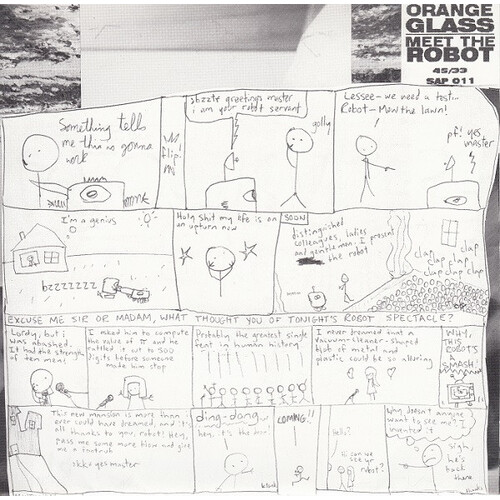 ORANGE
GLASS
MEET THE
ROBOT
45/33
SAP 011
Something tells
me this is gonna
work
flip!
bbzzte greetings master
i am your robot servant
golly
Lessee - we need a test...
Robot - Mow the lawn!
pf! yes
master
I'm a genius
bzzzzzzz
Holy shit my life is on
an upturn now
SOON
distinguished
colleagues, ladies
and gentle man: I present
the robot
clap
clap clap
clap clap
clap clap clap
EXCUSE ME SIR OR MADAM, WHAT THOUGHT YOU OF TONIGHT'S ROBOT SPECTACLE?
Lordy, but i
was abashed.
It had the strength
of ten men!
I asked him to compute
the value of π and he
rattled it out to 500
digits before someone
made him stop
Probably the greatest single
feat in human history
I never dreamed that a
vacuum-cleaner-shaped
blob of metal and
plastic could be so alluring
WHY,
THIS
ROBOT'S
A
SMASH!
This new mansion is more than i
ever could have dreamed, and it's
all thanks to you, robot! Hey,
pass me some more blow and give
me a
yes master
ding-dong
hey, it's the door
COMING!!
Hello?
can we
see yr
robot?
Why doesn't anyone
want to see me? I
invented it
sigh,
he's
back
there
thanks